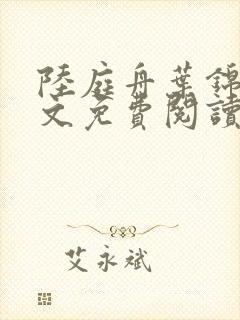 陸庭舟葉錦
文免費閱讀
艾永斌